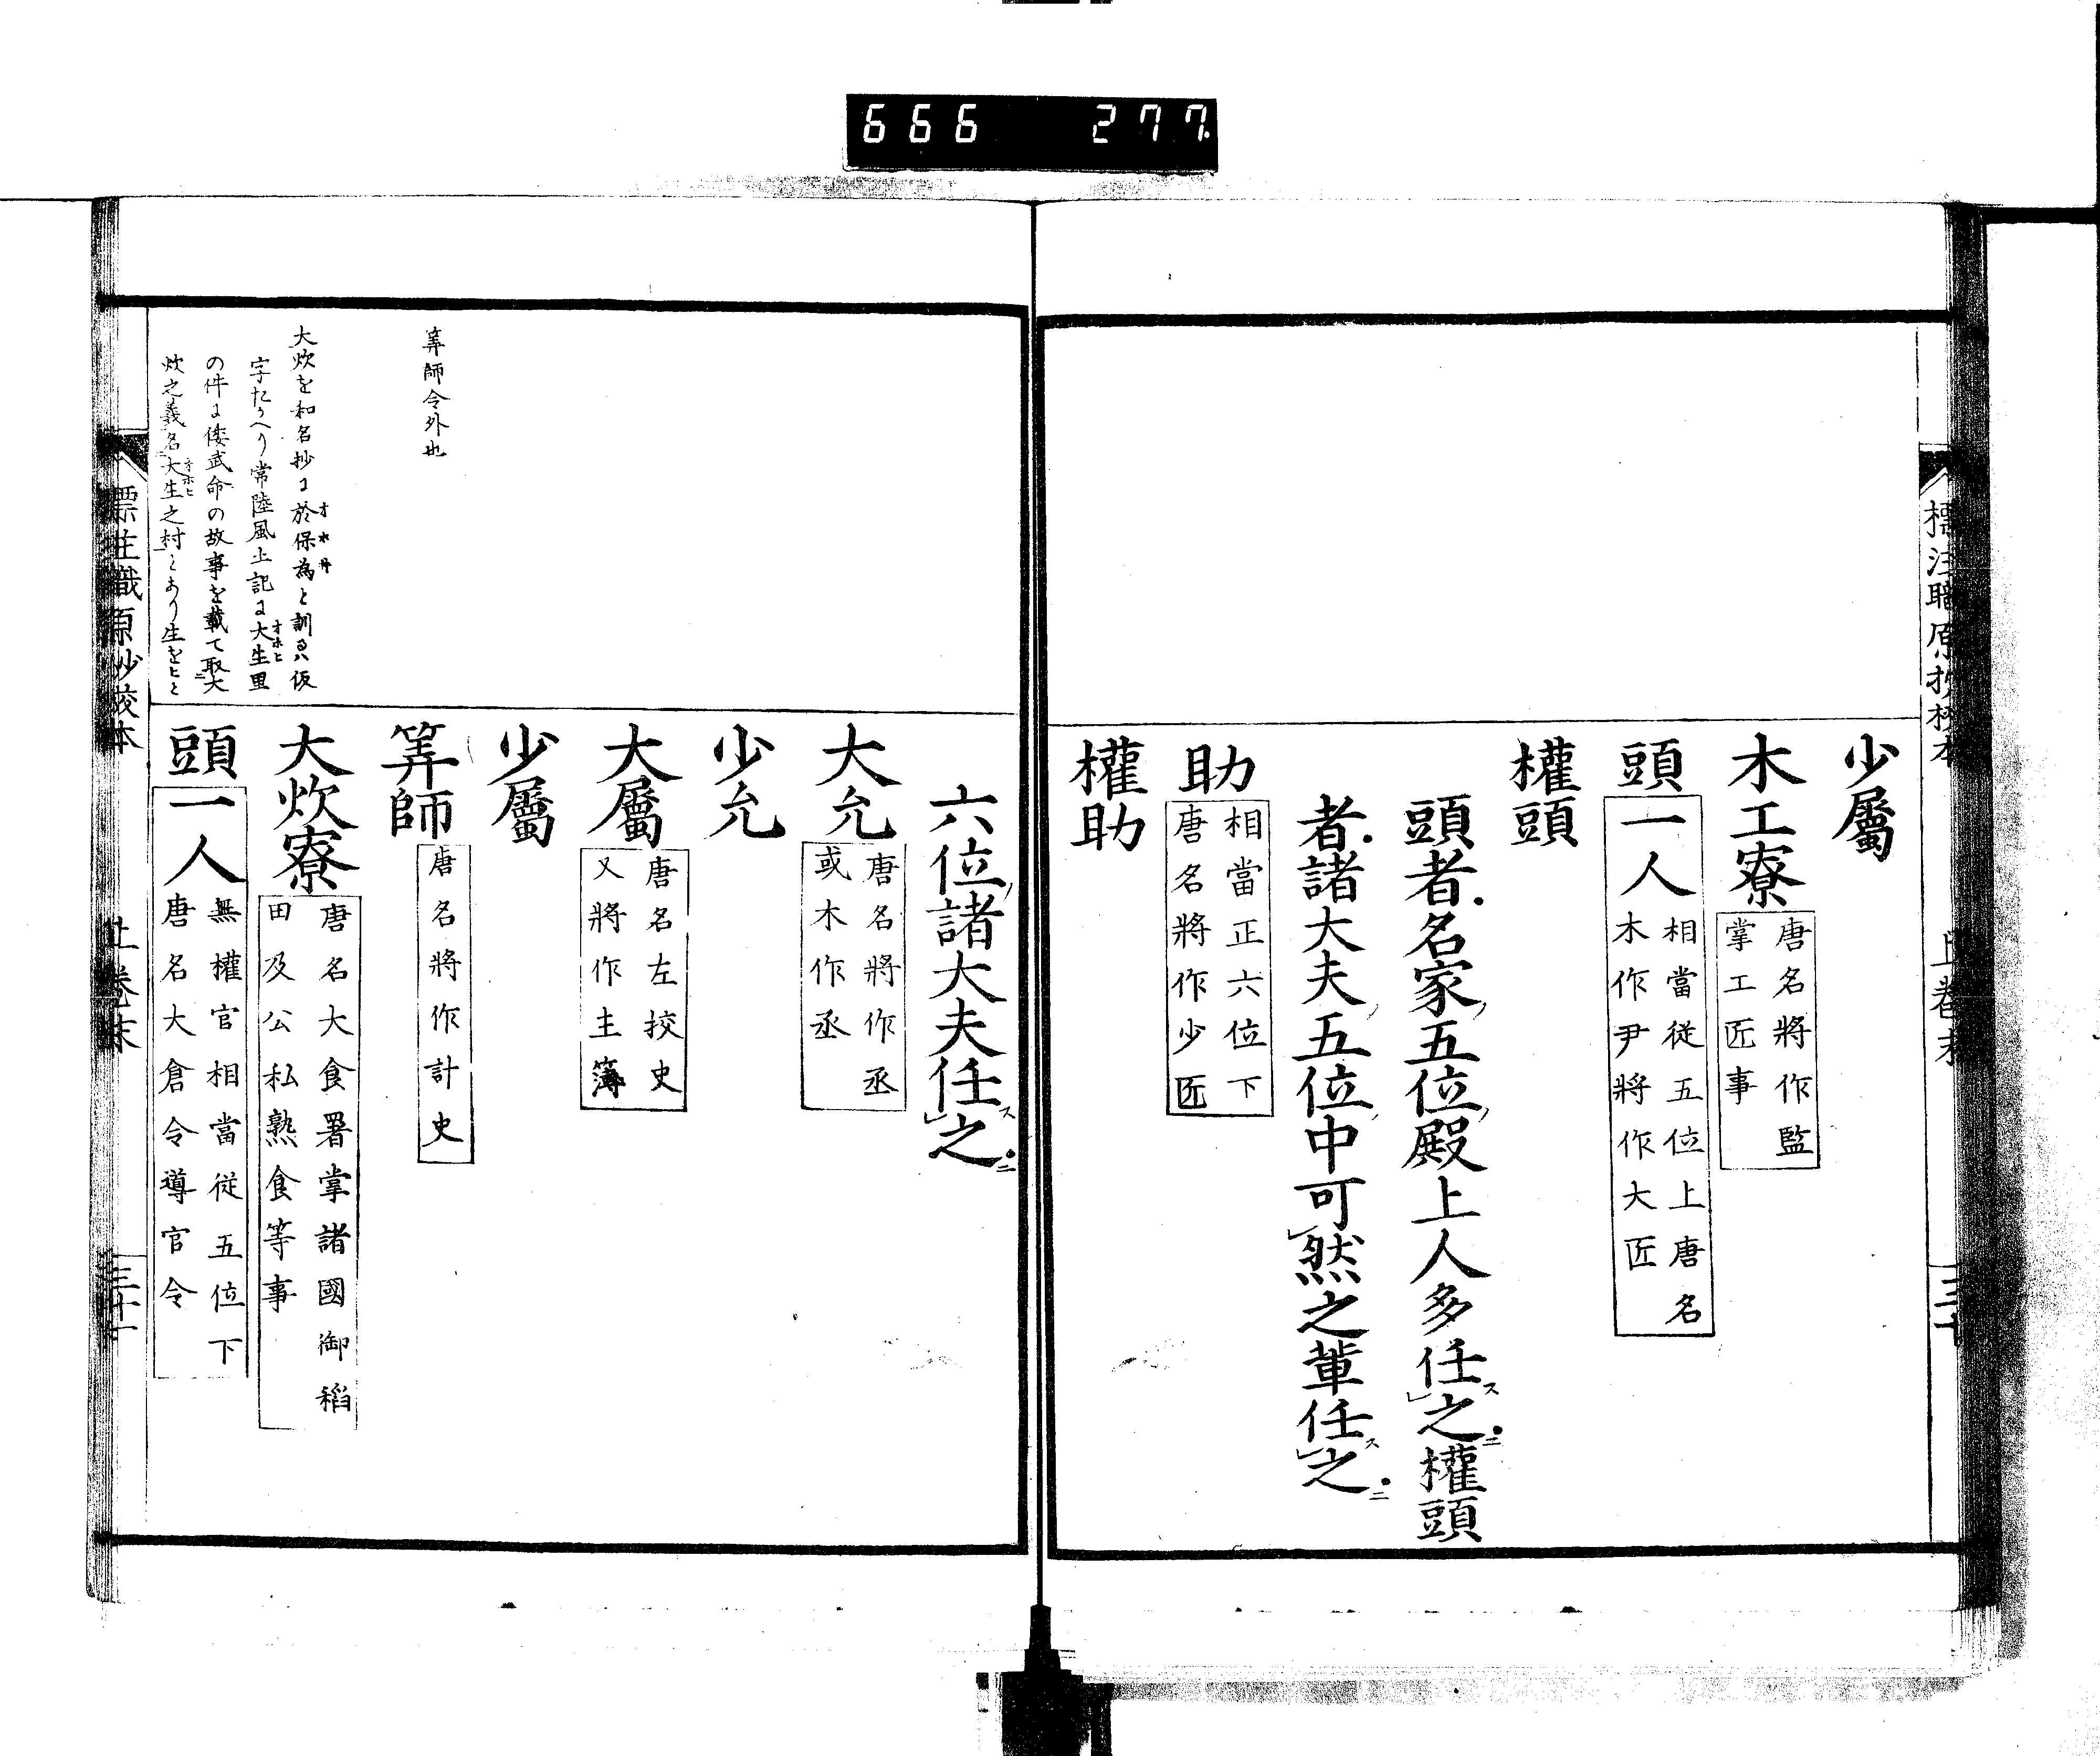 666 277
標注職原抄校本
上卷末
三十
少屬
木工寮
唐名將作監
掌工匠事
頭一人
相當従五位上唐名
木作尹將作大匠
權頭
頭者名家五位殿上人多任之權頭
者諸大夫五位中可然之輩任之
助
相當正六位下
唐名將作少匠
權助
六位諸大夫任之
大允
唐名將作丞
或木作丞
少允
大屬
唐名左挍史
又將作主簿
少屬
筭師
唐名將作計史
大炊寮
唐名大食署掌諸國御稻
田及公私熟食等事
頭一人
無權官相當従五位下
唐名大倉令導官令
筭師令外也
大炊を和名抄に於保為と訓るハ仮
字たかへり常陸風土記に大生里
の件に倭武命の故事を載て取大
炊之義名大生之村とあり生をヒと
標注職原抄校本
上卷末
三十一